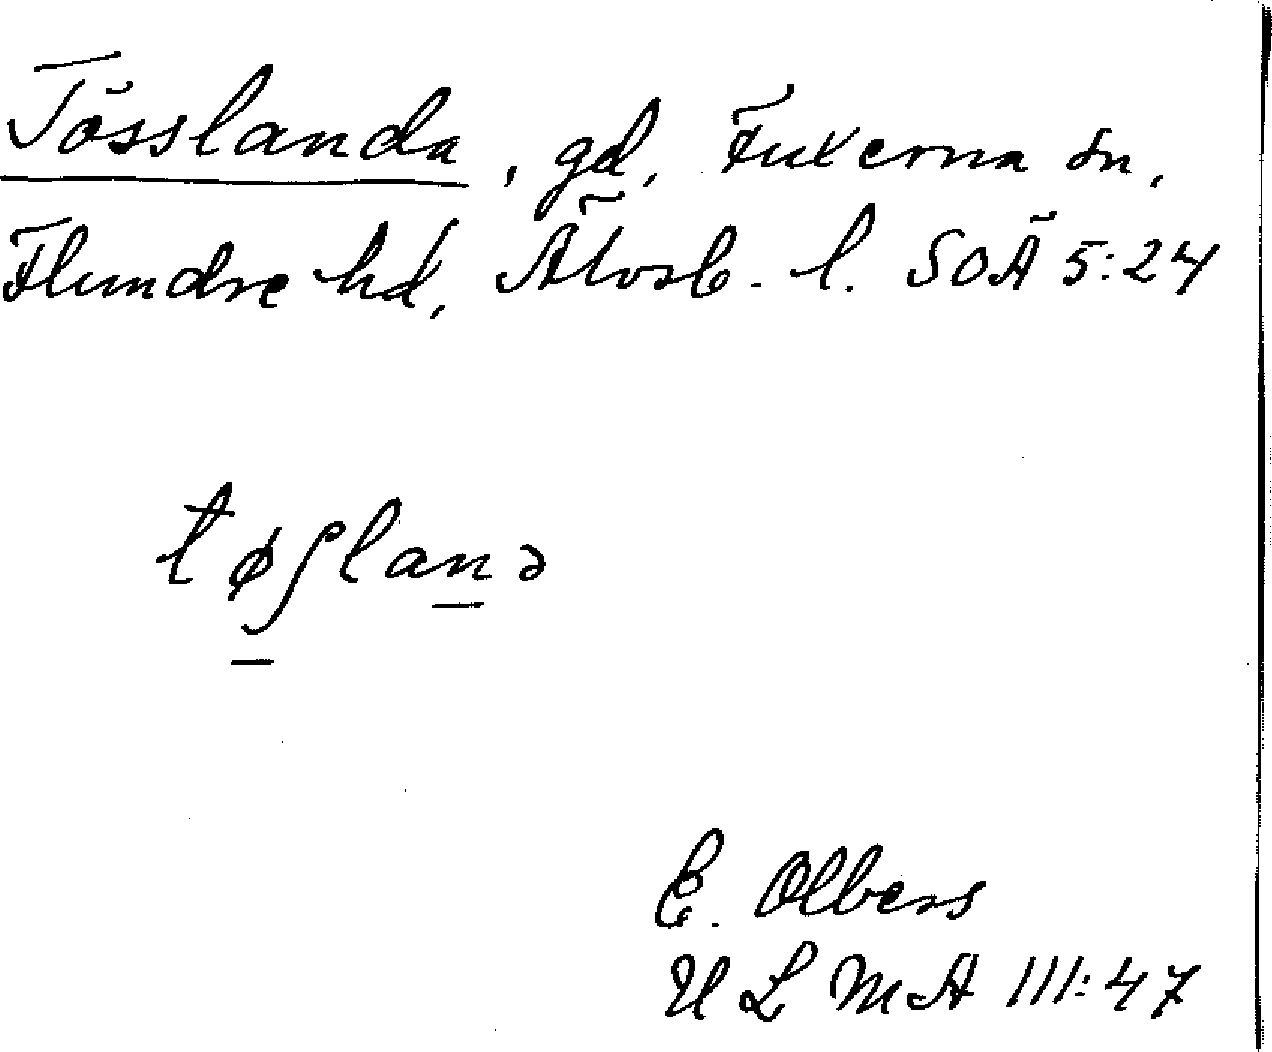 Tösslanda, gd, Fuxerna sn,
Flundre hd, Älvsb. l. SOÄ 5:24
tøʃlanə
E. Olbers
ULMA III:47